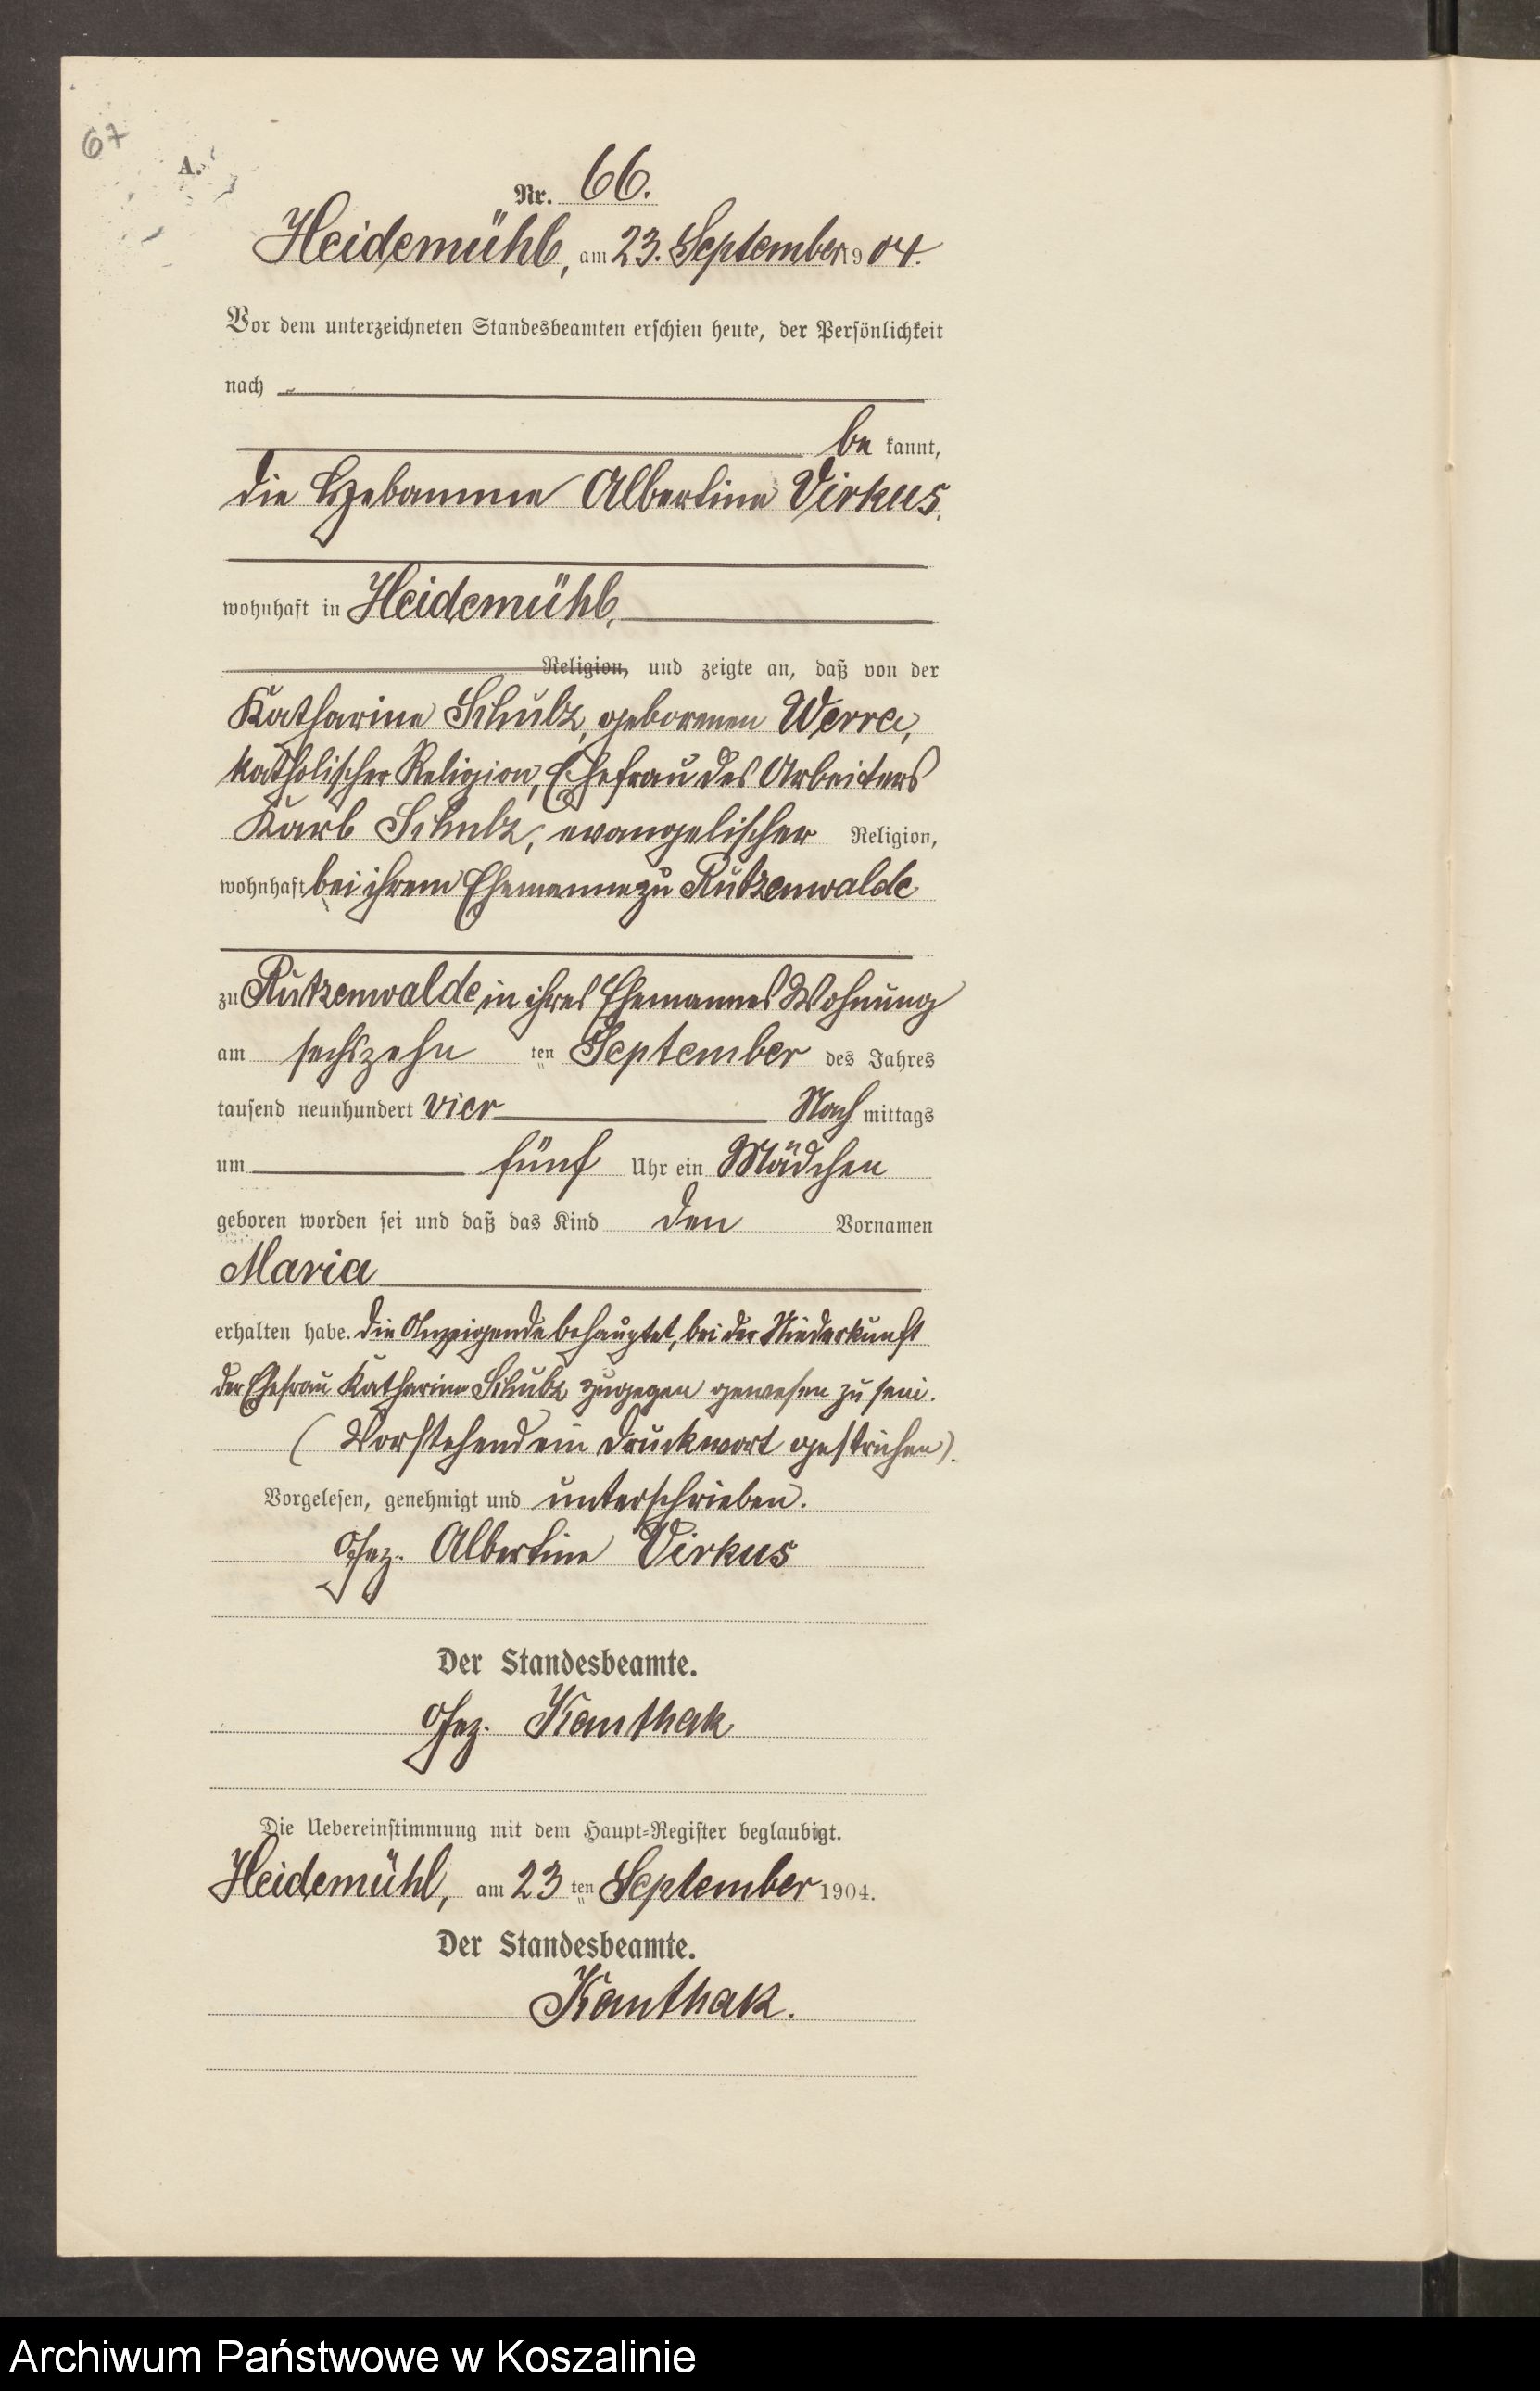 67
A.
Nr. 66.
Heidemühl, am 23. September 1904.
Vor dem unterzeichneten Standesbeamten erschien heute, der Persönlichkeit
nach
be kannt,
die Hebamme Albertine Virkus,
wohnhaft in Heidemühl,
Religion, und zeigte an, daß von der
Katharine Schulz, geborenen Werra,
katholischer Religion, Ehefrau des Arbeiters
Karl Schulz, evangelischer Religion,
wohnhaft bei ihrem Ehemanne zu Rutzenwalde
zu Rutzenwalde in ihres Ehemannes Wohnung
am sechszehn ten September des Jahres
tausend neunhundert vier Nach mittags
um fünf Uhr ein Mädchen
geboren worden sei und daß das Kind den Vornamen
Maria
erhalten habe. Die Anzeigende behauptet, bei der Niederkunft
der Ehefrau Katharine Schulz zugegen gewesen zu sein.
(Vorstehend ein Druckwort gestrichen).
Vorgelesen, genehmigt und unterschrieben.
Gez. Albertine Virkus
Der Standesbeamte.
Gez. Kanthak
Die Uebereinstimmung mit dem Haupt-Register beglaubigt.
Heidemühl, am 23 ten September 1904.
Der Standesbeamte.
Kanthak.
Archiwum Państwowe w Koszalinie